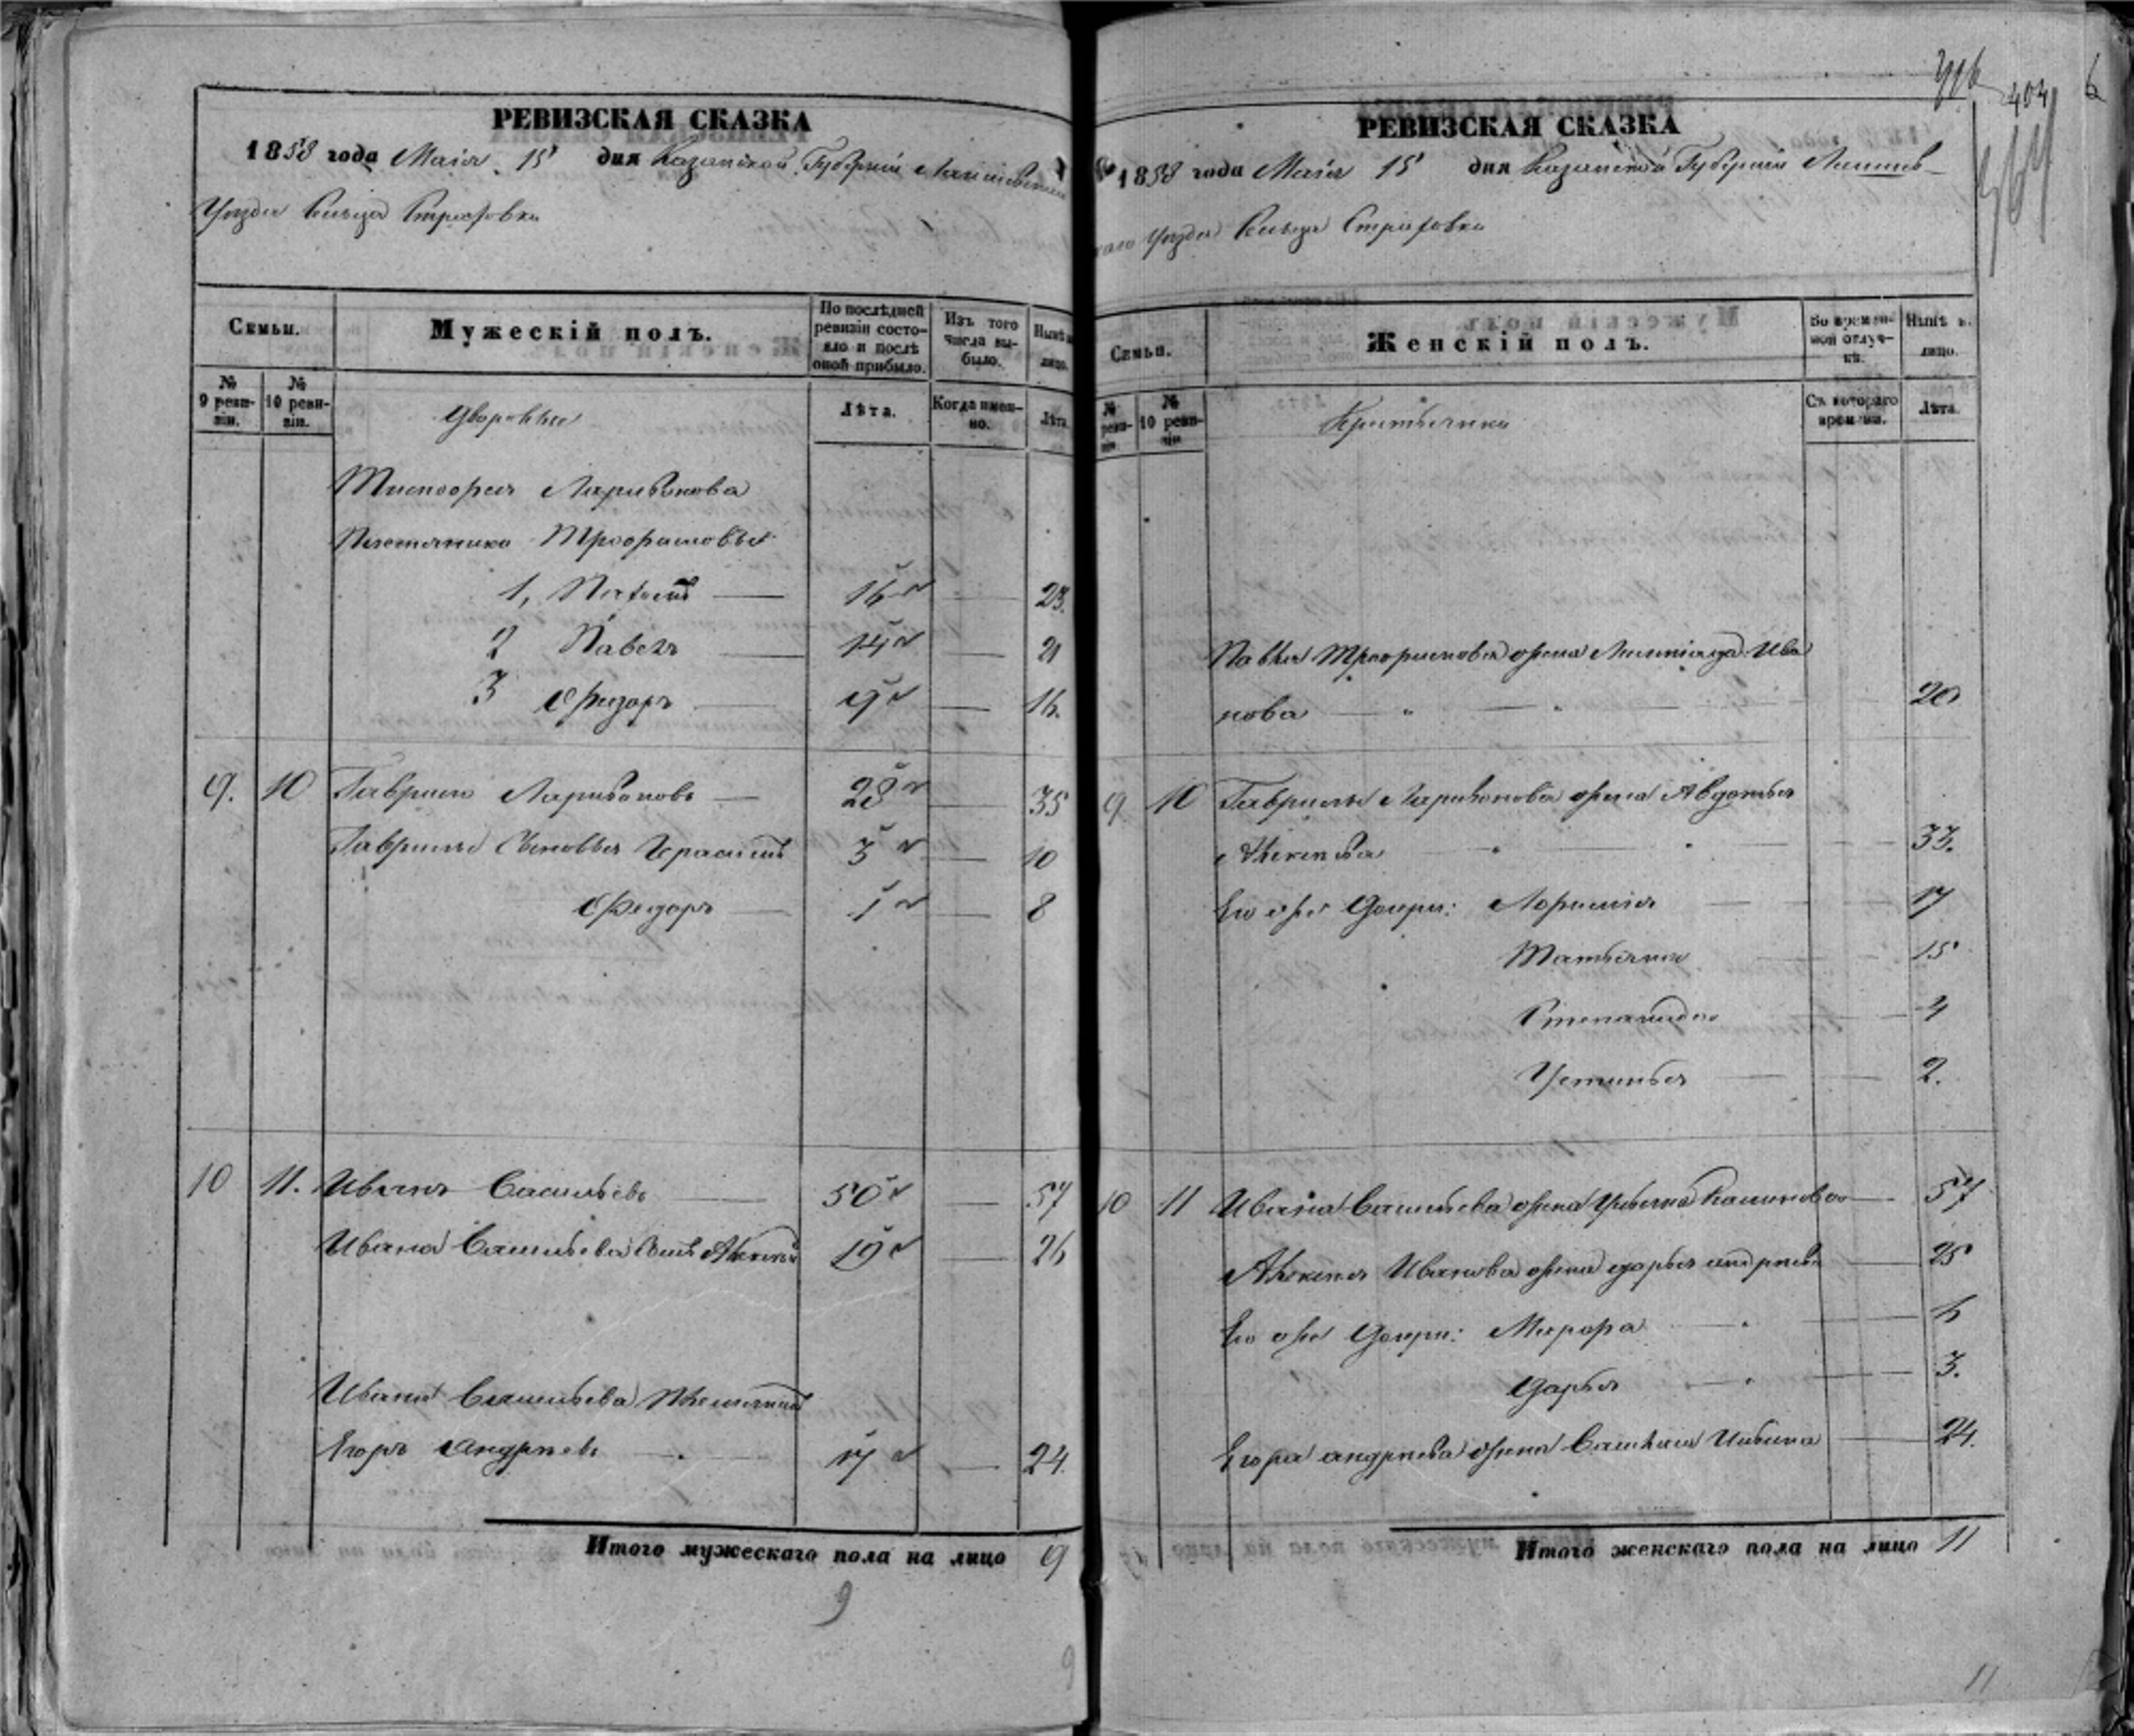 РЕВИЗСКАЯ СКАЗКА
1858 года Маія 15 дня Казанской Губерніи Лаишевскаго
Уѣзда Сельца
Семьи.
Мужескій полъ.
По послѣдней ревизіи состояло и послѣ оной прибыло.
Изъ того числа выбыло.
Нынѣ на лицо.
№ 9 ревизіи.
№ 10 ревизіи.
Дворовые
Лѣта.
Когда именно.
Лѣта
Ларивонова
Племянники Трофимовы
1,
16 23.
2 Павелъ 14 21
3 Федоръ 9 16.
9. 10 Гаврило Ларивоновъ 28 35
Гаврилы Сыновья Герасимъ 3 10
Федоръ 1 8
10 11. Иванъ Васильевъ 50 57
Ивана Васильева Сынъ Алексѣй 19 26
Ивана Васильева Племянникъ
Егоръ Андреевъ 17 24
Итого мужескаго пола на лицо 9
9
9
404
РЕВИЗСКАЯ СКАЗКА
1858 года Маія 15 дня Казанской Губерніи Лаишев-
скаго Уѣзда Сельца
Семьи.
Женскій полъ.
Во временной отлучкѣ.
Нынѣ на лицо.
№ ревизіи
№ 10 ревизіи
Крестьянки
Съ котораго времени.
Лѣта.
Павла Трофимова жена Ива
нова 20
9 10 Гаврилы Ларивонова жена Авдотья
Алексѣева 33.
Его же Дочери: 17
Татьяна 15
Степанида 4
Устинья 2.
10 11 Ивана Васильева жена 57
Алексѣя Иванова жена Дарья Андреева 25
Его же Дочери: 6
Дарья 3.
Егора Андреева жена 24.
Итого женскаго пола на лицо 11
11